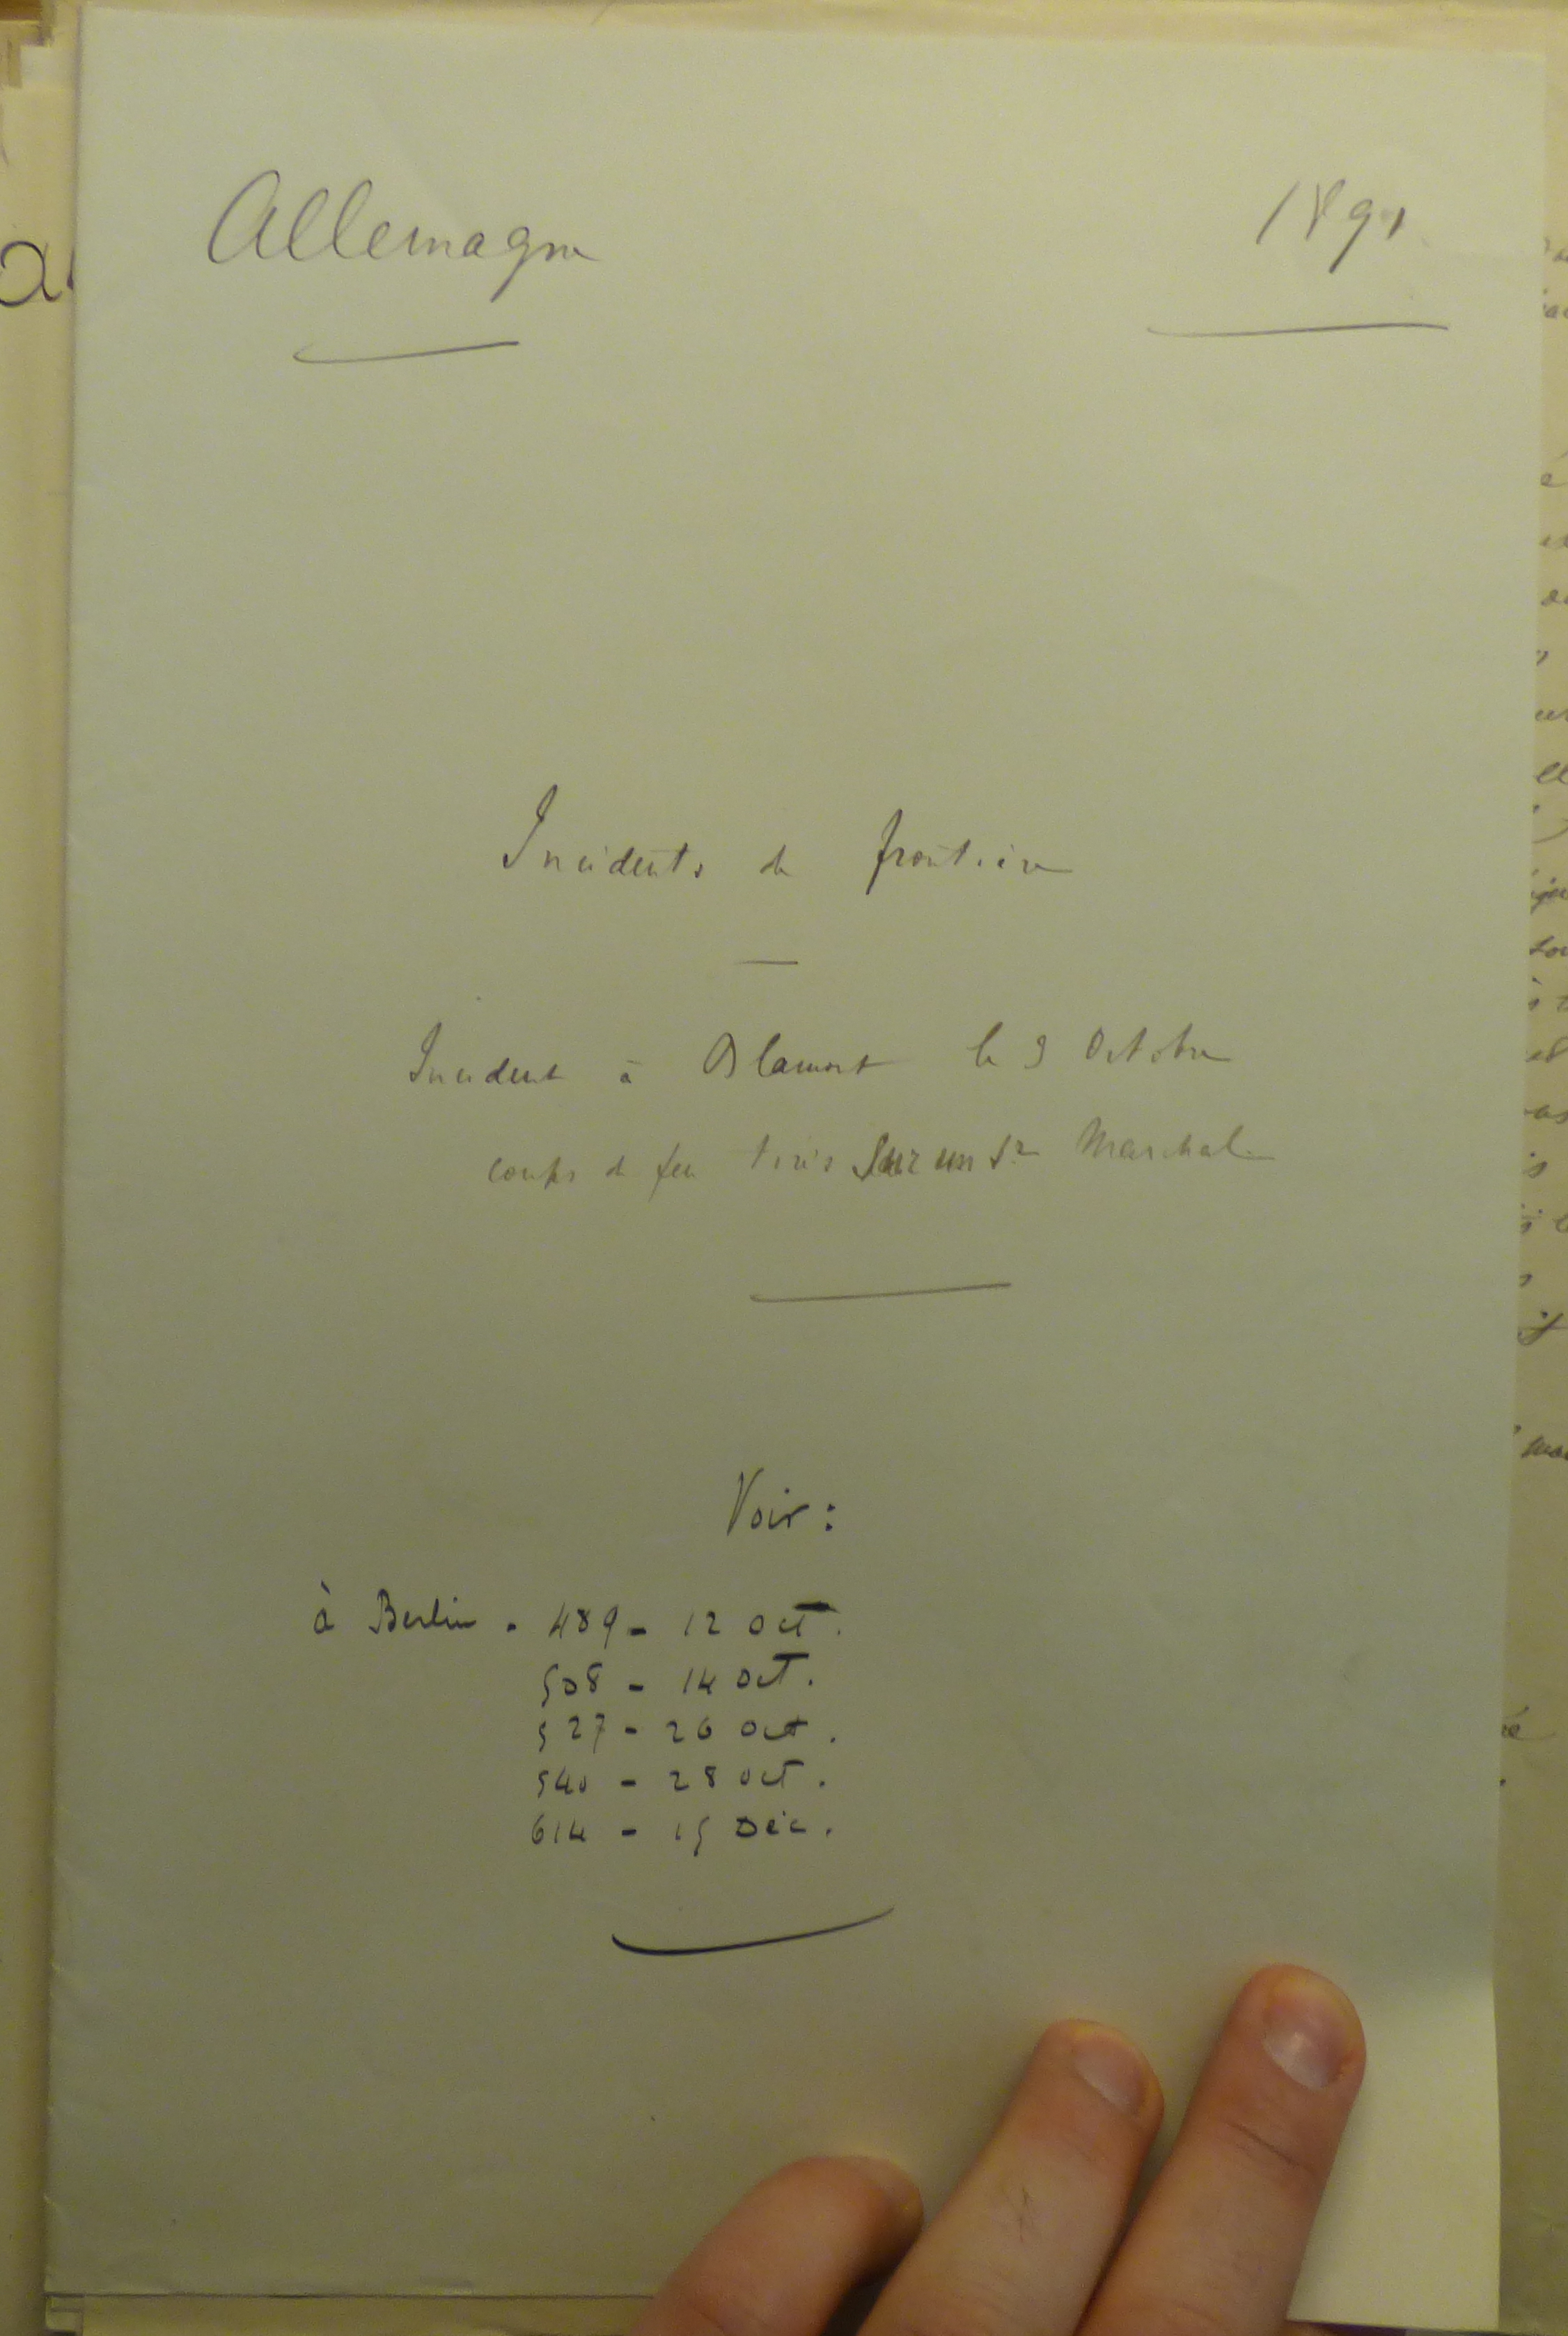 Allemagne
1891
Incidents de frontière
Incident à Blamont le 9 Octobre
coups de feu tirés sur un Sr Marchal
Voir :
à Berlin - 489 - 12 oct.
508 - 14 oct.
527 - 26 oct.
540 - 28 oct.
614 - 15 Déc.